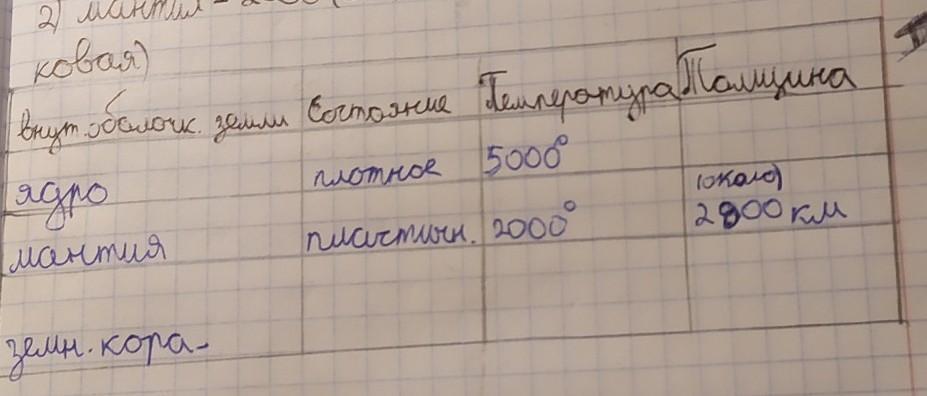 2) мантия -
ковая)
внут. оболочк. земли Состояние Температура Толщина
ядро плотное 5000°
(около)
мантия пластичн. 2000° 2900 км
земн. кора -